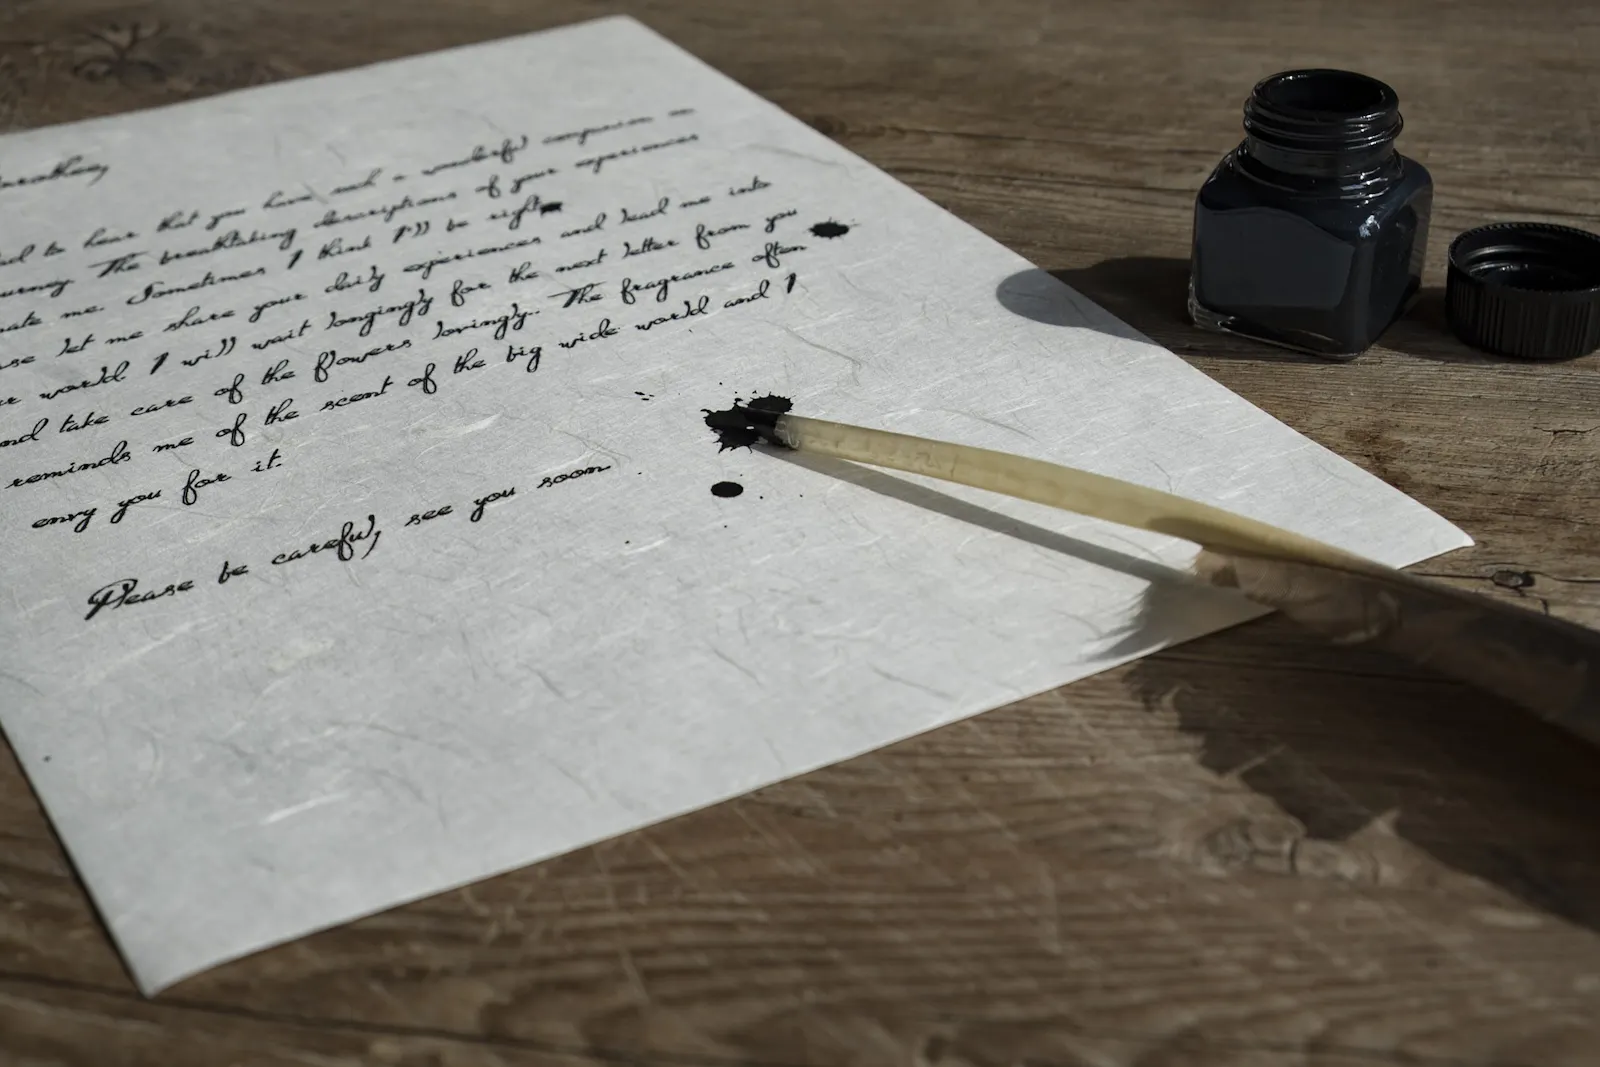 to hear that you have such a wonderful companion on
urney. The breathtaking descriptions of your experiences
nate me. Sometimes I think I'll be right
se let me share your daily experiences and lead me into
r world. I will wait longingly for the next letter from you
nd take care of the flowers lovingly.. The fragrance often
reminds me of the scent of the big wide world and I
envy you for it.
Please be careful, see you soon.